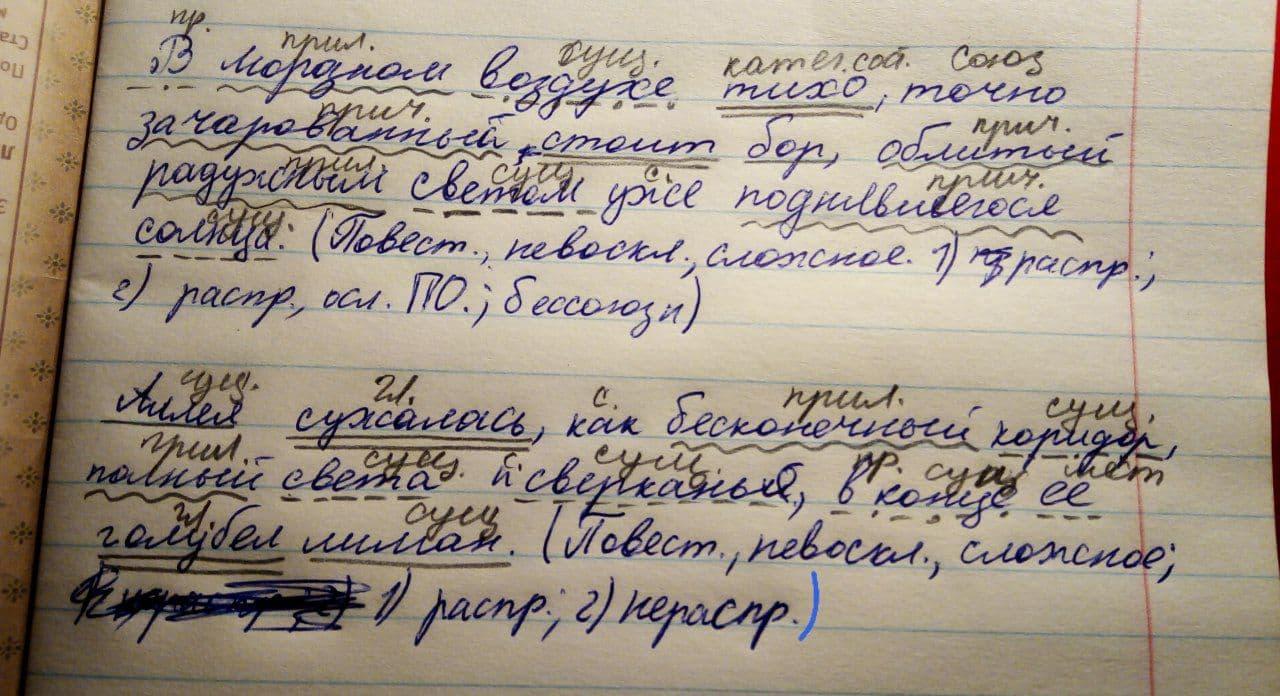 пр. прил. сущ. катег. сост. союз
В морозном воздухе тихо, точно
прич. прич.
зачарованный, стоит бор, облитый
прил. сущ. с. прич.
радужным светом уже поднявшегося
сущ.
солнца. (Повест., невоскл., сложное. 1) распр.;
2) распр., осл. ПО.; бессоюзн)
сущ. гл. с. прил. сущ.
Аллея сужалась, как бесконечный коридор,
прил. сущ. сущ. пр. сущ мест
полный света и сверканья, в конце ее
гл. сущ
голубел лиман. (Повест., невоскл., сложное;
1) распр.; 2) нераспр.)